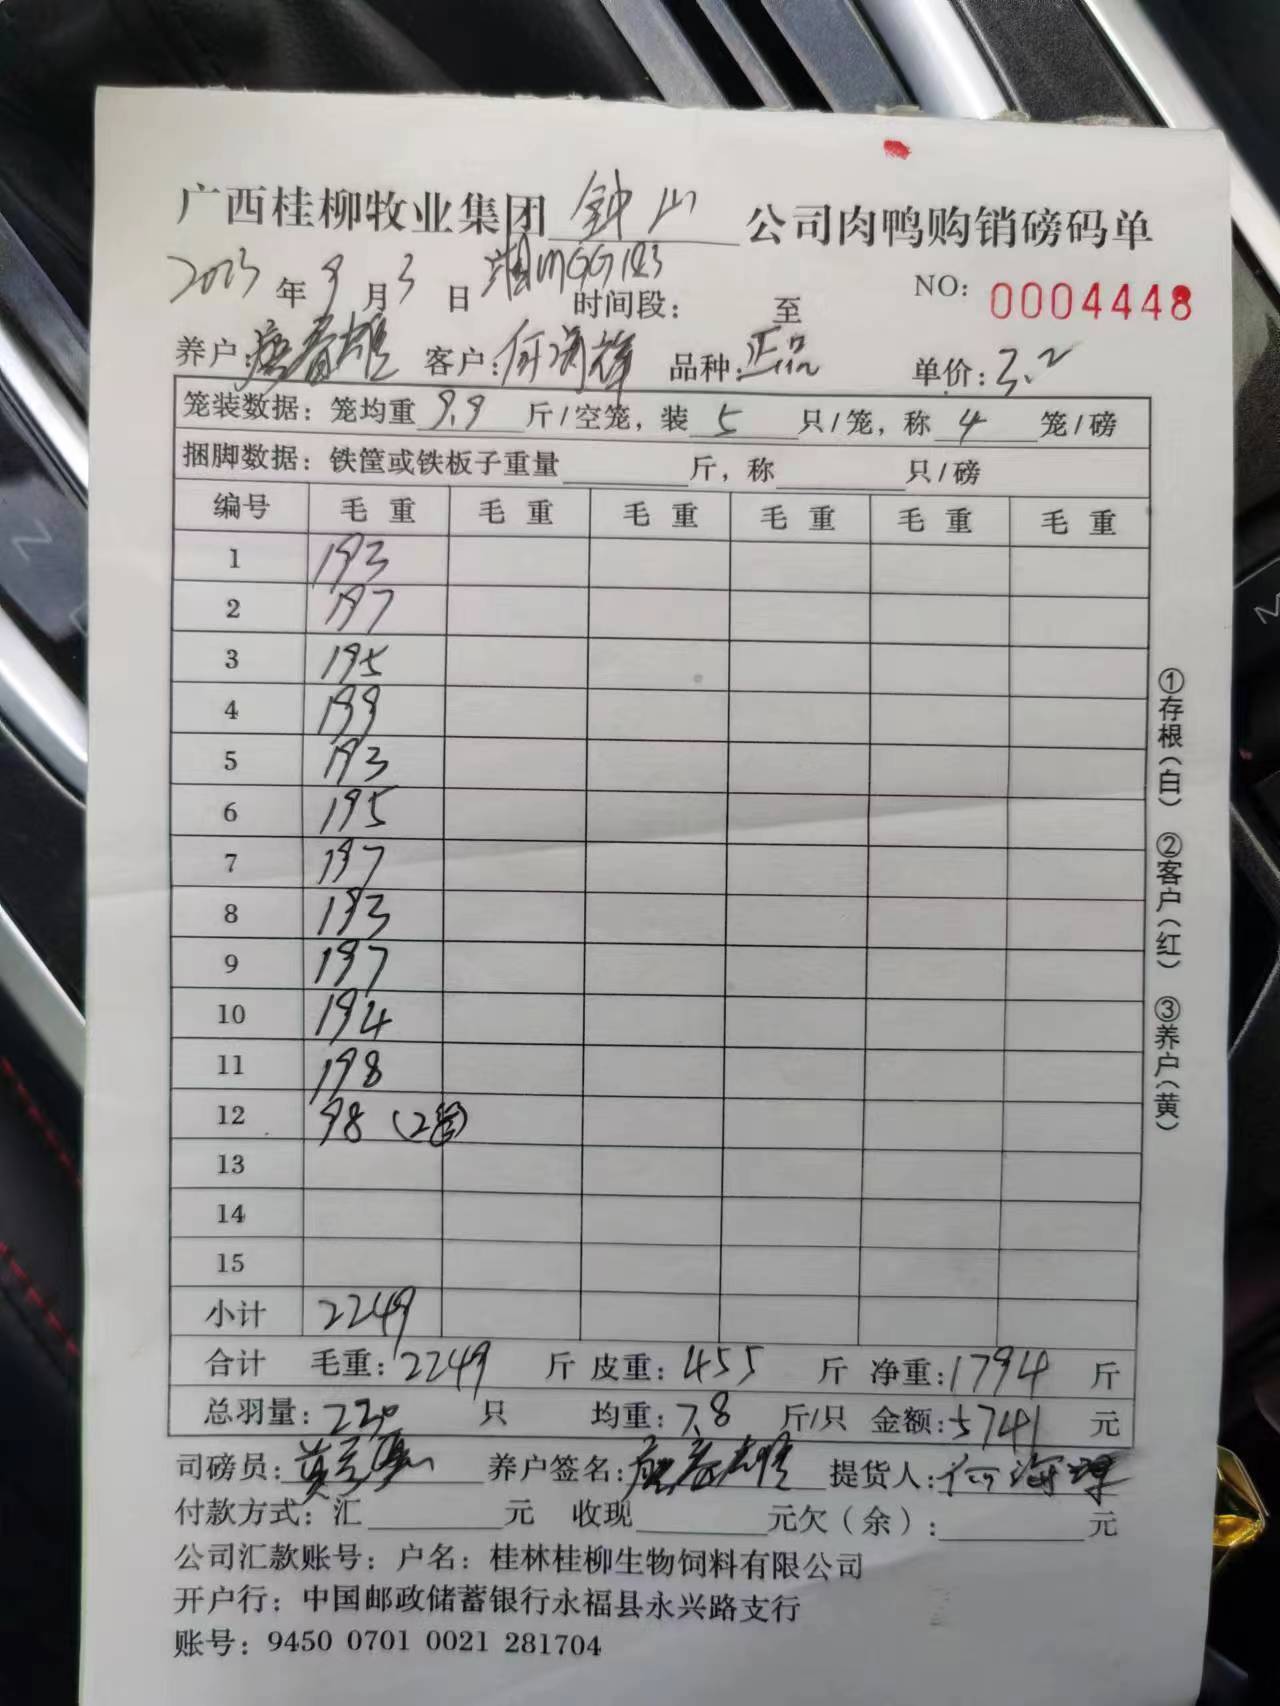 广西桂柳牧业集团 钟山 公司肉鸭购销磅码单
2023年9月3日 湘MGG123 时间段: 至 NO: 0004448
养户: 唐春雄 客户: 何海祥 品种: 正品 单价: 3.2
笼装数据: 笼均重 9.9 斤/空笼, 装 5 只/笼, 称 4 笼/磅
捆脚数据: 铁筐或铁板子重量 斤, 称 只/磅
编号 毛重 毛重 毛重 毛重 毛重 毛重
1 193
2 197
3 195
4 199
5 193
6 195
7 197
8 193
9 197
10 194
11 198
12 98 (2笼)
13
14
15
小计 2249
合计 毛重: 2249 斤 皮重: 455 斤 净重: 1794 斤
总羽量: 230 只 均重: 7.8 斤/只 金额: 5741 元
司磅员: 养户签名: 唐春雄 提货人: 何海祥
付款方式: 汇 元 收现 元欠(余): 元
公司汇款账号: 户名: 桂林桂柳生物饲料有限公司
开户行: 中国邮政储蓄银行永福县永兴路支行
账号: 9450 0701 0021 281704
①存根(白) ②客户(红) ③养户(黄)